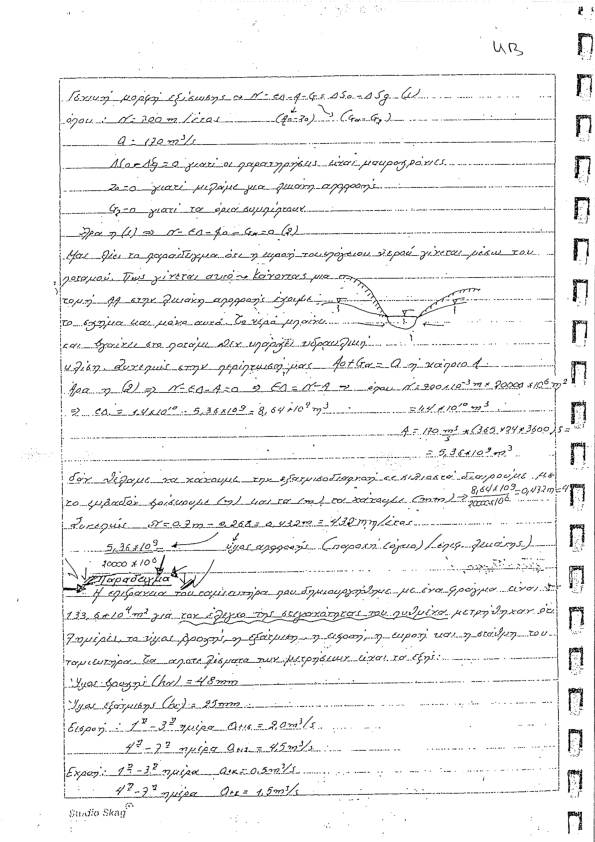 ΥΒ
Γενική μορφή εξίσωσης ~ N - εΔ - A - G = ΔSo - ΔSg (1)
όπου : N = 700 m/έτος (Ao-Zo) (Gα-Gz)
Q = 170 m³/s
ΔSo = ΔSg = 0 γιατί οι παρατηρήσεις είναι μακροχρόνιες
Zo = 0 γιατί μιλάμε για λεκάνη απορροής
Gz = 0 γιατί τα όρια συμπίπτουν
Άρα η (1) ⇒ N - εΔ - Ao - Gα = 0 (2)
Μας λέει το παράδειγμα ότι η εκροή του υπόγειου νερού γίνεται μέσω του
ποταμού. Πως γίνεται αυτό ~ Κάνοντας μια
τομή AA στην λεκάνη απορροής έχουμε
το σχήμα και μόνο αυτό. Το νερό μπαίνει
και βγαίνει στο ποτάμι Δεν υπάρχει υδραυλική
κλίση. Συνεπώς στην περίπτωσή μας Ao + Gα = Q ή καλύτερα A
Άρα η (2) ⇒ N - εΔ - A = 0 ⇒ εΔ = N - A ~ όπου N = 700 × 10⁻³ m × 20000 × 10⁶ m²
⇒ εΔ = 1,4 × 10¹⁰ - 5,36 × 10⁹ = 8,64 × 10⁹ m³ = 1,4 × 10¹⁰ m³
A = 170 m³/s × (365 × 24 × 3600) s =
= 5,36 × 10⁹ m³
Εάν θέλαμε να κάνουμε την εξατμισοδιαπνοή σε χιλιοστά διαιρούμε με
το εμβαδόν βρίσκουμε (m) και τα (m) τα κάνουμε (mm) ⇒ 8,64 × 10⁹ / 20000 × 10⁶ = 0,432 m = 4
Συνεπώς N = 0,7 m - 0,268 = 0,432 m = 432 mm/έτος
5,36 × 10⁹ / 20000 × 10⁶ ύψος απορροής (παροχή (όγκος) / επιφ. λεκάνης)
Παράδειγμα
Η επιφάνεια του ταμιευτήρα που δημιουργήθηκε με ένα φράγμα είναι
133,6 × 10⁴ m² για τον έλεγχο της στεγανότητας του πυθμένα μετρήθηκαν επί
7 ημέρες, το ύψος βροχής, η εξάτμιση, η εισροή, η εκροή και η στάθμη του
ταμιευτήρα. Τα αποτελέσματα των μετρήσεων είναι τα εξής:
Ύψος βροχής (hN) = 48 mm
Ύψος εξάτμισης (hε) = 25 mm
Εισροή : 1η - 3η ημέρα = 2,0 m³/s
4η - 7η ημέρα = 4,5 m³/s
Εκροή : 1η - 3η ημέρα = 0,5 m³/s
4η - 7η ημέρα = 1,5 m³/s
Studio Skag